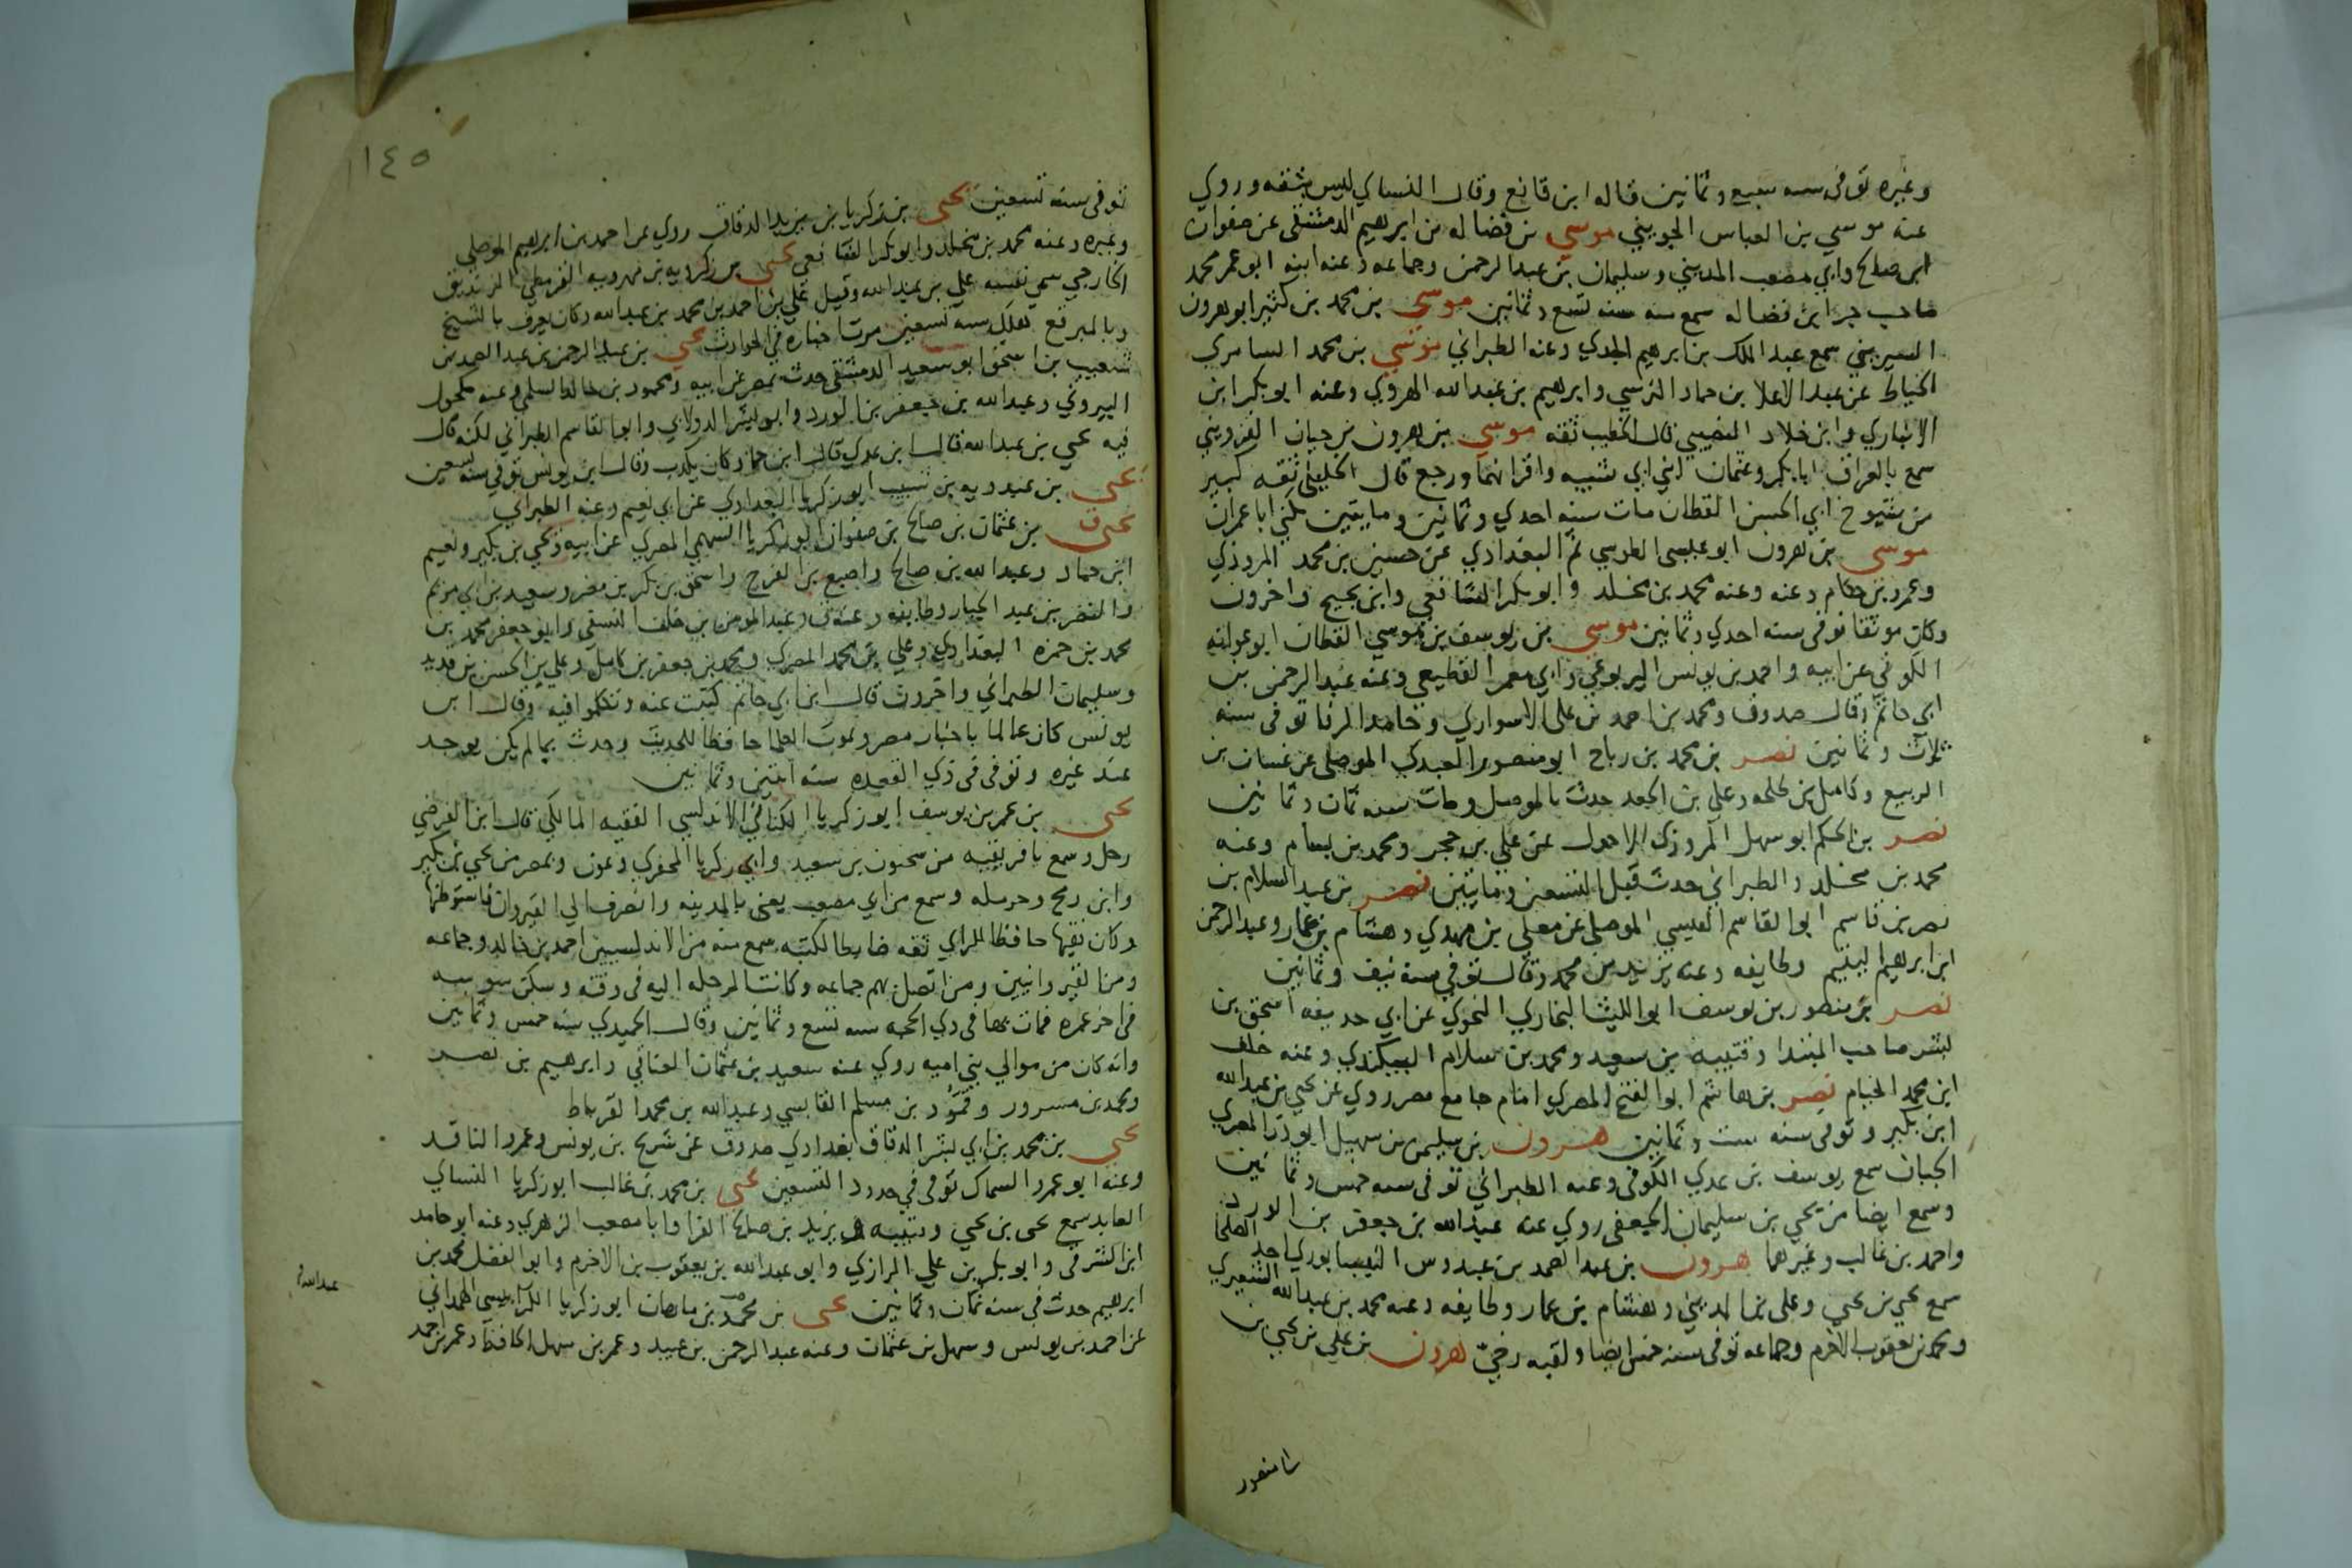 وغيره توفي سنه سبع وثمانين قاله ابن قانع وقال النساي ليس بثقه وروي
عنه موسي بن العباس الجويني موسي بن فضاله بن ابرهيم الدمشقي عن صفوان
ابن صالح وابي مصعب المديني وسليمان بن عبد الرحمن وجماعه وعنه ابنه ابو عمر محمد
صاحب جزا ابن فضاله سمع سنه تسع وثمانين موسي بن محمد بن كثير ابو هرون
السيريني سمع عبد الملك بن ابرهيم الجدي وعنه الطبراني موسي بن محمد السامري
الخياط عن عبد الاعلا بن حماد النرسي وابرهيم بن عبد الله الهروي وعنه ابو بكر ابن
الانباري وابن خلاد النصيبي قال الخطيب ثقه موسي بن هرون بن حيان القزويني
سمع بالعراق ابا بكر وعثمان ابني ابي شيبه واقرانهما ورجع قال الخليلي ثقه كبير
من شيوخ ابي الحسن القطان مات سنه احدي وثمانين ومايتين يكني ابا عمران
موسي بن هرون ابو عيسي الطوسي ثم البغدادي عن حسين بن محمد المروذي
وعمرو بن حكام وعنه وعنه محمد بن مخلد وابو بكر الشافعي وابن نجيح واخرون
وكان موثقا توفي سنه احدي وثمانين موسي بن يوسف بن موسي القطان ابو عوانه
الكوفي عن ابيه واحمد بن يونس اليربوعي وابي معمر القطيعي وعنه عبد الرحمن بن
ابي حاتم وقال صدوق ومحمد بن احمد بن علي الاسواري وحامد الرفا توفي سنه
ثلاث وثمانين نصر بن محمد بن رباح ابو منصور العبدي الموصلي عن غسان بن
الربيع وكامل بن طلحه وعلي بن الجعد حدث بالموصل ومات سنه ثمان وثمانين
نصر بن الحكم ابو سهل المروزي الاحول عن علي بن حجر ومحمد بن بسام وعنه
محمد بن مخلد والطبراني حدث قبل التسعين ومايتين نصر بن عبد السلام بن
نصر بن قاسم ابو القاسم القيسي الموصلي عن معلي بن مهدي وهشام بن عمار وعبد الرحمن
ابن ابرهيم اليتيم وطايفه وعنه يزيد بن محمد وقال توفي سنه نيف وثمانين
نصر بن منصور بن يوسف ابو الليث البخاري النحوي عن ابي حذيفه اسحق بن
بشر صاحب المبتدا وقتيبه بن سعيد ومحمد بن سلام البيكندي وعنه خلف
ابن محمد الخيام نصر بن هاشم ابو الفتح المصري امام جامع مصر روي عن يحيي بن عبد الله
ابن بكير وتوفي سنه ست وثمانين هرون بن سليمن بن سهيل ابو ذر المصري
الجبان سمع يوسف بن عدي الكوفي وعنه الطبراني توفي سنه خمس وثمانين
وسمع ايضا من يحيي بن سليمان الجعفي روي عنه عبد الله بن جعفر بن الورد
واحمد بن غالب وغيرهما هرون بن عبد الصمد بن عبدوس النيسابوري احد العلما
سمع يحيي بن يحيي وعلي بن المديني وهشام بن عمار وطايفه وعنه محمد بن عبد الله الشعيري
ومحمد بن يعقوب الاخرم وجماعه توفي سنه خمس ايضا ولقبه رخي هرون بن علي بن يحيي بن
ابي منصور
١٤٥
توفي سنه تسعين يحيي بن زكريا بن يزيد الدقاق روي عن احمد بن ابراهيم الموصلي
وغيره وعنه محمد بن مخلد وابو بكر الشافعي يحيي بن زكرويه بن مهرويه القرمطي الزنديق
الخارجي سمي نفسه علي بن عبد الله وقيل علي بن احمد بن محمد بن عبد الله وكان يعرف بالشيخ
وبالمبرقع هلك سنه تسعين مرت اخباره في الحوادث يحيي بن عبد الرحمن بن عبد الصمد بن
شعيب بن اسحق ابو سعيد الدمشقي حدث بمصر عن ابيه ومحمود بن خالد السلمي وعنه مكحول
البيروتي وعبد الله بن جعفر بن الورد وابو بشر الدولابي وابو القاسم الطبراني لكنه قال
فيه يحيي بن عبد الله قال ابن عدي قال ابن حماد كان يكذب وقال ابن يونس توفي سنه تسعين
يحيي بن عبدويه بن شبيب ابو زكريا البغدادي عن ابي نعيم وعنه الطبراني
يحيي ق بن عثمان بن صالح بن صفوان ابو زكريا السهمي المصري عن ابيه ويحيي بن بكير ونعيم
ابن حماد وعبد الله بن صالح واصبغ بن الفرج واسحق بن بكر بن مضر وسعيد بن ابي مريم
والنضر بن عبد الجبار وطايفه وعنه ق وعبد المومن بن خلف النسفي وابو جعفر محمد بن
محمد بن حمزه البغدادي وعلي بن محمد المصري ومحمد بن جعفر بن كامل وعلي بن الحسن بن قديد
وسليمان الطبراني واخرون قال ابن ابي حاتم كتبت عنه وتكلموا فيه وقال ابن
يونس كان عالما باخبار مصر وبموت العلما حافظا للحديث وحدث بما لم يكن يوجد
عند غيره وتوفي في ذي القعده سنه اثنتين وثمانين
يحيي بن عمر بن يوسف ابو زكريا الكناني الاندلسي الفقيه المالكي قال ابن الفرضي
رحل وسمع بافريقيه من سحنون بن سعيد وابي زكريا الحفري وعون وبمصر من يحيي بن بكير
وابن رمح وحرمله وسمع من ابي مصعب يعني بالمدينه وانصرف الي القيروان فاستوطنها
وكان فقيها حافظا للراي ثقه ضابطا لكتبه سمع منه من الاندلسيين احمد بن خالد وجماعه
ومن القيروانيين ومن اتصل بهم جماعه وكانت الرحله اليه في وقته وسكن سوسه
في اخر عمره فمات بها في ذي الحجه سنه تسع وثمانين وقال الحميدي سنه خمس وثمانين
وانه كان من موالي بني اميه روي عنه سعيد بن عثمان العناقي وابرهيم بن نصر
ومحمد بن مسرور وقمود بن مسلم القابسي وعبد الله بن محمد القرباط
يحيي بن محمد بن ابي بشر الدقاق بغدادي صدوق عن شريح بن يونس وعمرو الناقد
وعنه ابو عمرو السماك توفي في حدود التسعين يحيي بن محمد بن غالب ابو زكريا النساي
العابد سمع يحيي بن يحيي وقتيبه يزيد بن صالح الفرا وابا مصعب الزهري وعنه ابو حامد
ابن الشرقي وابو بكر بن علي الرازي وابو عبد الله بن يعقوب بن الاخرم وابو الفضل محمد بن
ابرهيم حدث في سنه ثمان وثمانين يحيي بن محمد بن ماهان ابو زكريا الكرابيسي الهمداني
عن احمد بن يونس وسهل بن عثمان وعنه عبد الرحمن بن عبيد وعمر بن سهل الحافظ وعمر بن حمد
عبد الله